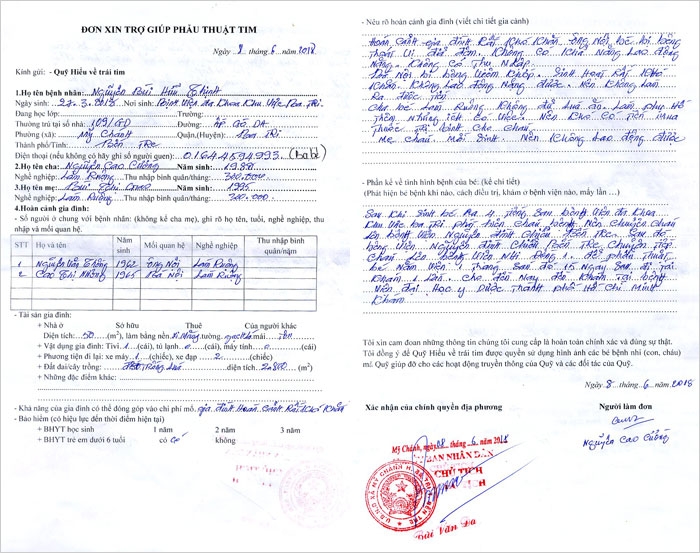 ĐƠN XIN TRỢ GIÚP PHẪU THUẬT TIM
Ngày 8 tháng 6 năm 2018
Kính gửi: - Quỹ Hiểu về trái tim
1.Họ tên bệnh nhân: Nguyễn Bùi Hữu Thịnh
Ngày sinh: 27.3.2018 Nơi sinh: Bệnh Viện đa Khoa Khu Vực Ba Tri
Đang học lớp: Trường:
Thường trú tại số nhà: 109/GD ấp Gò DA
Phường (xã): Mỹ Chánh Quận,(Huyện): Ba Tri
Thành phố/Tỉnh: Bến Tre
Điện thoại (nếu không có hãy ghi số người quen): 01644594993 (Ba bé)
2.Họ tên cha: Nguyễn Cao Cường Năm sinh: 1988
Nghề nghiệp: Làm Ruộng Thu nhập bình quân/tháng: 300.000
3.Họ tên mẹ: Bùi Thị Năm sinh: 1995
Nghề nghiệp: Làm Ruộng Thu nhập bình quân/tháng: 300.000
4.Hoàn cảnh gia đình:
- Số người ở chung với bệnh nhân: (không kể cha mẹ), ghi rõ họ tên, tuổi, nghề nghiệp, thu
nhập và mối quan hệ:
STT Họ và tên Năm sinh Mối quan hệ Nghề nghiệp Thu nhập bình quân/năm
1 Nguyễn Văn 1962 Ông Nội Làm Ruộng
2 Cao Thị 1965 Bà Nội Làm Ruộng
- Tài sản gia đình:
+ Nhà ở Sở hữu Thuê Của người khác
Diện tích: 50 (m²), làm bằng nền xi măng tường mái
+ Vật gia dụng: Tivi 1 (cái), tủ lạnh 0 (cái), máy tính 0 (cái)
+ Phương tiện đi lại: xe máy 1 (chiếc), xe đạp 2 (chiếc)
+ Đất đai/cây trồng: đất trồng Lúa diện tích 2.800 (m²)
+ Những đặc điểm khác:
- Khả năng của gia đình có thể đóng góp vào chi phí mổ: gia đình Hoàn Cảnh Rất Khó Khăn
- Bảo hiểm (có hiệu lực đến thời điểm hiện tại)
+ BHYT học sinh 1 năm 2 năm 3 năm
+ BHYT trẻ em dưới 6 tuổi có có không
- Nêu rõ hoàn cảnh gia đình (viết chi tiết gia cảnh)
Hoàn cảnh gia đình Rất Khó Khăn. Ông Nội bé bị bệnh
thoát vị đĩa đệm Không Có Khả Năng Lao động
Nặng. Không Có Thu Nhập.
Bà Nội bị bệnh Khớp. Sinh Hoạt Rất Khó
Khăn. Không Lao động Nặng được Nên Không Làm
Ra được Tiền
Cha bé Làm Ruộng Không đủ Làm phụ Hồ
Thêm Những ít Có Việc. Nên Khó Có Tiền Mua
Thuốc Trị bệnh Cho Cháu
Mẹ Cháu Mới Sinh Nên Không Lao động được
- Phần kể về tình hình bệnh của bé: (kể chi tiết)
(Phát hiện bệnh khi nào, cách điều trị, khám ở bệnh viện nào, mấy lần …)
Sau Khi Sinh bé Ra bệnh Viện đa Khoa
Khu Vực Ba Tri Cháu bệnh Nên Chuyển Cháu
Lên bệnh Viện Nguyễn đình Chiểu Bến Tre. Sau đó
bệnh Viện Nguyễn đình Chiểu Bến Tre Chuyển
Cháu Lên bệnh Viện Nhi đồng 1. để phẫu thuật
bé Nằm Viện 1 Tháng Sau đó 15 Ngày Sau đi Tái
Khám 1 Lần. Cho đến Nay đã Khám Tại bệnh
Viện đại Học y Dược Thành phố Hồ Chí Minh
Khám
Tôi xin cam đoan những thông tin chúng tôi cung cấp là hoàn toàn chính xác và đúng sự thật.
Tôi đồng ý để Quỹ Hiểu về trái tim được quyền sử dụng hình ảnh các bé bệnh nhi (con, cháu)
mà Quỹ giúp đỡ cho các hoạt động truyền thông của Quỹ và các đối tác của Quỹ.
Ngày 8 tháng 6 năm 2018
Xác nhận của chính quyền địa phương Người làm đơn
Mỹ Chánh, ngày 08 tháng 6 năm 2018
BAN NHÂN DÂN
CHỦ TỊCH
Nguyễn Cao Cường
Bùi Văn Đa